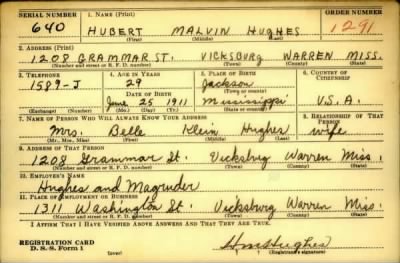 SERIAL NUMBER 1. NAME (Print) ORDER NUMBER
640 HUBERT MALVIN HUGHES 1291
(First) (Middle) (Last)
2. ADDRESS (Print)
1208 GRAMMAR ST. VICKSBURG WARREN MISS.
(Number and street or R. F. D. number) (Town) (County) (State)
3. TELEPHONE 4. AGE IN YEARS 5. PLACE OF BIRTH 6. COUNTRY OF CITIZENSHIP
1589-J 29 Jackson
(Town or county)
DATE OF BIRTH
June 25 1911 Mississippi U.S.A.
(Exchange) (Number) (Mo.) (Day) (Yr.) (State or country)
7. NAME OF PERSON WHO WILL ALWAYS KNOW YOUR ADDRESS 8. RELATIONSHIP OF THAT PERSON
Mrs. Belle Klein Hughes wife
(Mr., Mrs., Miss) (First) (Middle) (Last)
9. ADDRESS OF THAT PERSON
1208 Grammar St. Vicksburg Warren Miss.
(Number and street or R. F. D. number) (Town) (County) (State)
10. EMPLOYER'S NAME
Hughes and Magruder
11. PLACE OF EMPLOYMENT OR BUSINESS
1311 Washington St. Vicksburg Warren Miss.
(Number and street or R. F. D. number) (Town) (County) (State)
I AFFIRM THAT I HAVE VERIFIED ABOVE ANSWERS AND THAT THEY ARE TRUE.
REGISTRATION CARD
D. S. S. Form 1 H M Hughes
(Registrant's signature)